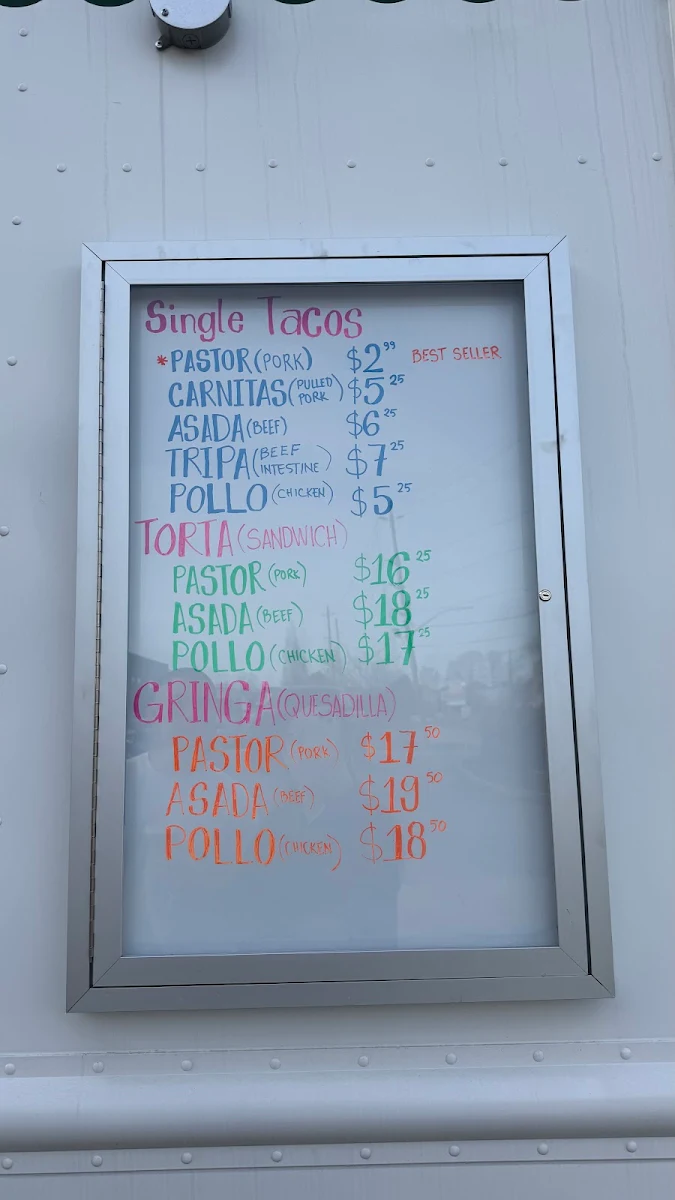 Single Tacos
*PASTOR (PORK) $2.99 BEST SELLER
CARNITAS (PULLED PORK) $5.25
ASADA (BEEF) $6.25
TRIPA (BEEF INTESTINE) $7.25
POLLO (CHICKEN) $5.25
TORTA (SANDWICH)
PASTOR (PORK) $16.25
ASADA (BEEF) $18.25
POLLO (CHICKEN) $17.25
GRINGA (QUESADILLA)
PASTOR (PORK) $17.50
ASADA (BEEF) $19.50
POLLO (CHICKEN) $18.50